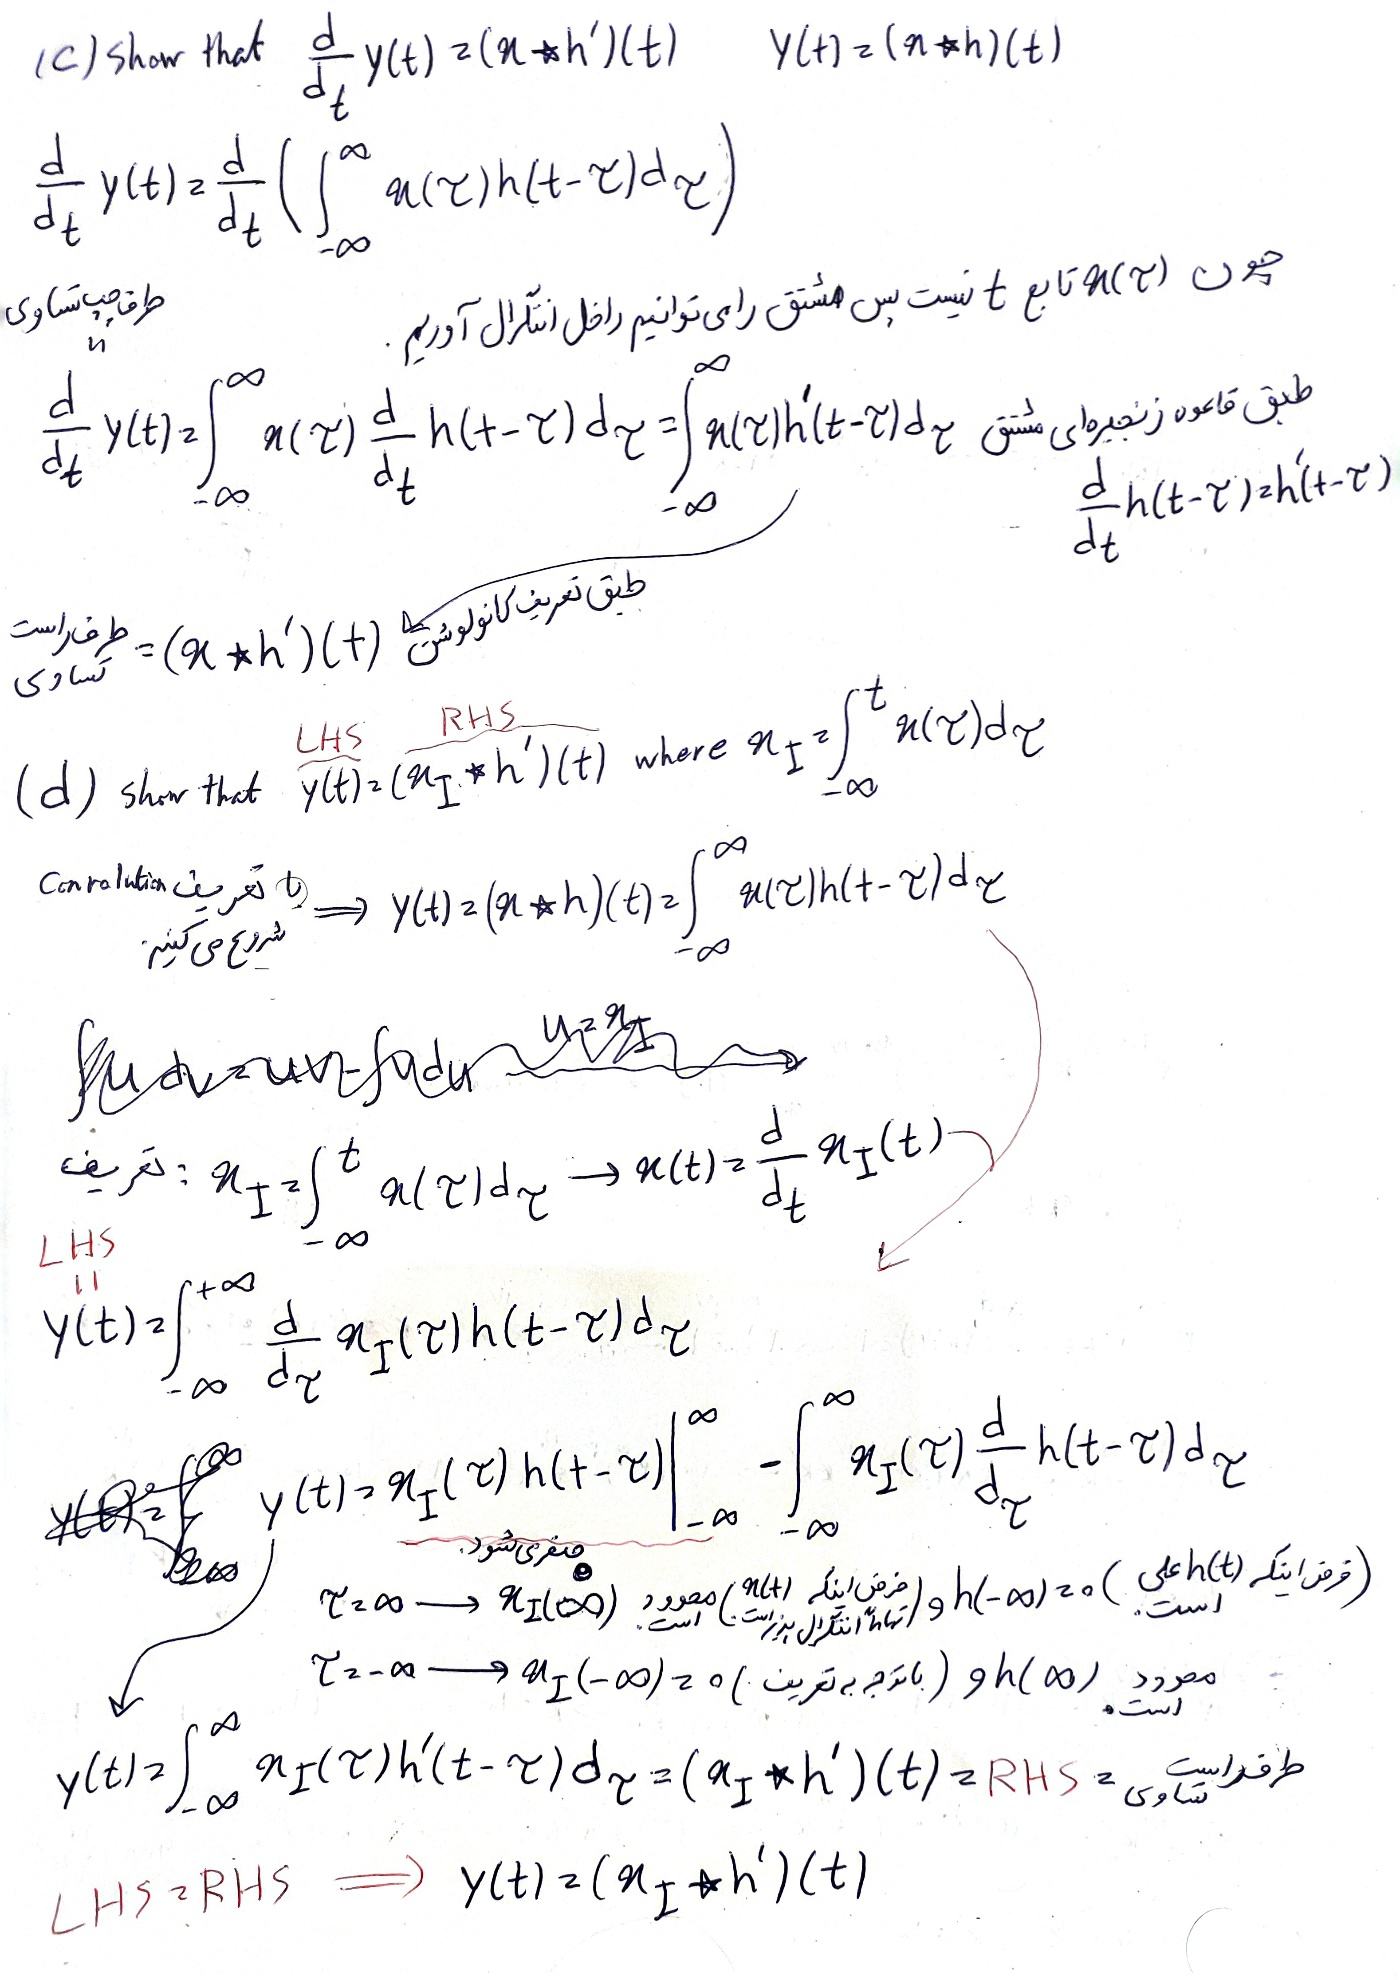 (C) Show that d/dt y(t) = (x ★ h′)(t)    y(t) = (x ★ h)(t)
d/dt y(t) = d/dt ( ∫_{-∞}^{∞} x(τ) h(t-τ) dτ )
چون x(τ) تابع t نیست پس مشتق را می توانیم داخل انتگرال آوریم .
طرف چپ تساوی
=
d/dt y(t) = ∫_{-∞}^{∞} x(τ) d/dt h(t-τ) dτ = ∫_{-∞}^{∞} x(τ) h′(t-τ) dτ    طبق قاعده زنجیره‌ای مشتق
d/dt h(t-τ) = h′(t-τ)
طرف راست تساوی = (x ★ h′)(t)    طبق تعریف کانولوشن
LHS    RHS
(d) show that y(t) = (x_I ★ h′)(t) where x_I = ∫_{-∞}^{t} x(τ) dτ
با تعریف Convolution شروع می کنیم. ⟹ y(t) = (x ★ h)(t) = ∫_{-∞}^{∞} x(τ) h(t-τ) dτ
∫u dv = uv - ∫v du    u = x_I →
تعریف : x_I = ∫_{-∞}^{t} x(τ) dτ → x(t) = d/dt x_I(t)
LHS
=
y(t) = ∫_{-∞}^{+∞} d/dτ x_I(τ) h(t-τ) dτ
y(t) = x_I(τ) h(t-τ) |_{-∞}^{∞} - ∫_{-∞}^{∞} x_I(τ) d/dτ h(t-τ) dτ
صفر می شود.
τ = ∞ → x_I(∞) محدود است. (فرض اینکه x(t) انتگرال پذیر است.) و h(-∞) = 0 (فرض اینکه h(t) علی است.)
τ = -∞ → x_I(-∞) = 0 (با توجه به تعریف) و h(∞) محدود است.
y(t) = ∫_{-∞}^{∞} x_I(τ) h′(t-τ) dτ = (x_I ★ h′)(t) = RHS = طرف راست تساوی
LHS = RHS ⟹ y(t) = (x_I ★ h′)(t)